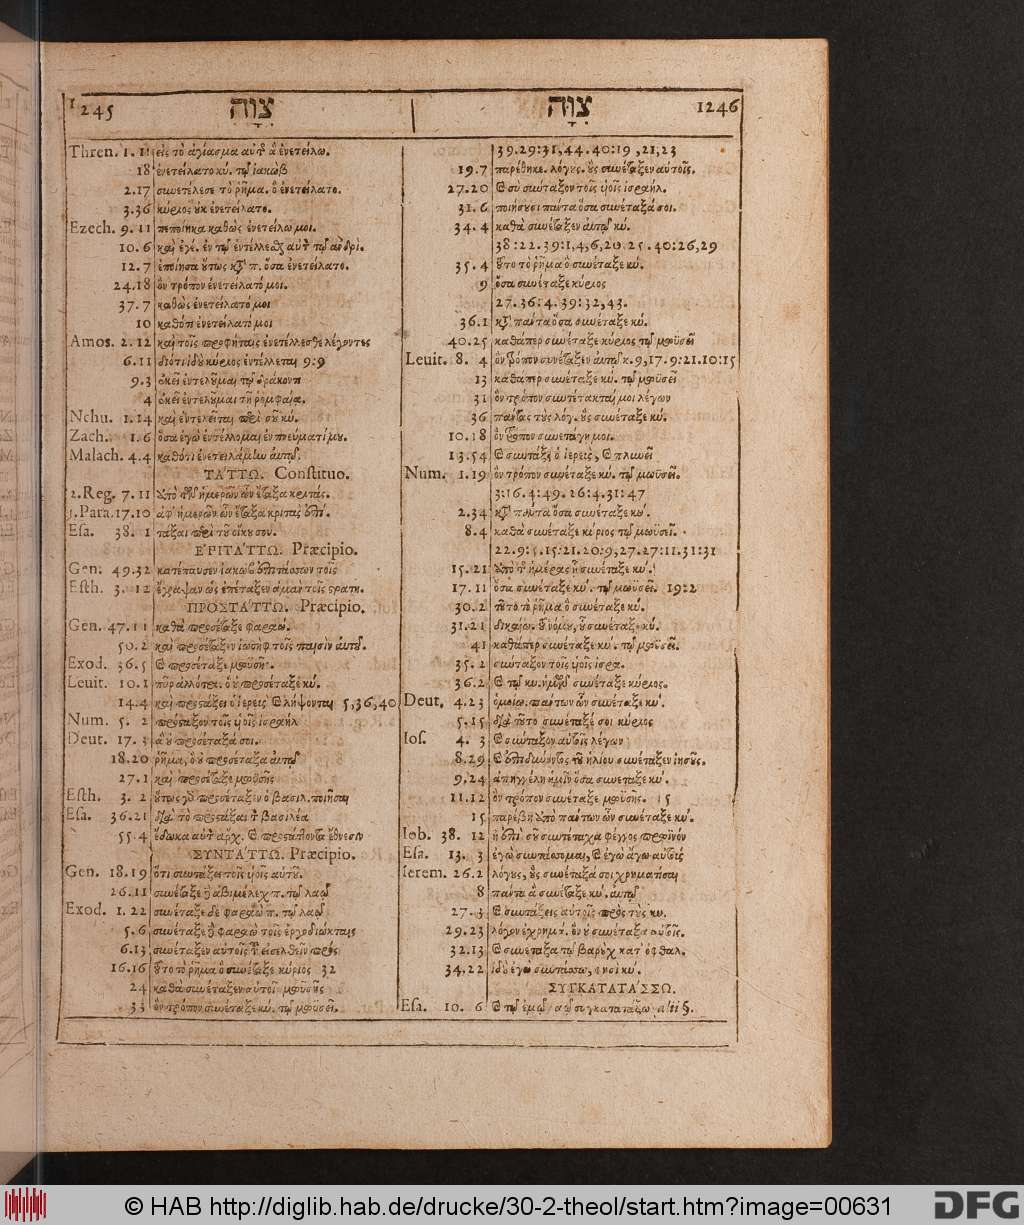 1245 צִוָּה
צִוָּה 1246
Thren. 1. 1 εἰς τὸ ἁγίασμα αὐτ ἃ ἐνετείλω.
18 ἐνετείλατο κύ. τῷ ἰακὼβ
2.17 συνετέλεσε τὸ ῥῆμα. ὃ ἐνετείλατο.
3.36 κύριος οὐκ ἐνετείλατο.
Ezech. 9. 11 πεποίηκα καθὼς ἐνετείλω μοι.
10. 6 ἐν τῷ ἐντέλλεσθ
12. 7 ἐποίησα οὕτως κτ π. ὅσα ἐνετείλατο.
24.18 ὃν τρόπον ἐνετείλατό μοι.
37. 7 καθὼς ἐνετείλατό μοι
10 καθότι ἐνετείλατό μοι
Amos. 2. 12 καὶ τοῖς προφήταις ἐνετέλλεσθε λέγοντες
6.11 διότι ἰδοὺ κύριος ἐντέλλεται 9:9
9.3 ἐκεῖ ἐντελοῦμαι τῷ δράκοντι
4 ἐκεῖ ἐντελοῦμαι τῇ ῥομφαίᾳ.
Nehu. 1.14 καὶ ἐντελεῖται περὶ σοῦ κύ.
Zach. 1.6 ὅσα ἐγὼ ἐντέλλομαι ἐν πνεύματί μου.
Malach. 4.4 καθότι ἐνετειλάμην αὐτῷ.
ΤΑΤΤΩ. Constituo.
2.Reg. 7. 11 ἀπὸ τῶν ἡμερῶν ὧν ἔταξα κριτάς.
1.Para. 17.10 ἀφ' ἡμερῶν ὧν ἔταξα κριτὰς ἐπί.
Esa. 38. 1 τάξαι περὶ τοῦ οἴκου σου.
ΕΠΙΤΑΤΤΩ. Præcipio.
Gen. 49.32 κατέπαυσεν ἰακὼβ ἐπιτάσσων τοῖς
Esth. 3. 12 ἔγραψαν ὡς ἐπέταξεν ἀμὰν τοῖς στρατη.
ΠΡΟΣΤΑΤΤΩ. Præcipio.
Gen. 47.11 καθὰ προσέταξε φαραώ.
50.2 καὶ προσέταξεν ἰωσὴφ τοῖς παισὶν αὐτοῦ.
Exod. 36.5 προσέταξε μωυσῆς.
Levit. 10.1 πῦρ ἀλλότρι. ὃ οὐ προσέταξε κύ.
14.4 καὶ προστάξει ὁ ἱερεὺς & λήψονται 5,36,40
Num. 5. 2 πρόσταξον τοῖς υἱοῖς ἰσραήλ
Deut. 17. 3 ἃ οὐ προσέταξά σοι.
18.20 ῥῆμα, ὃ οὐ προσέταξα αὐτῷ
27.1 καὶ προσέταξε μωυσῆς
Esth. 3. 2 οὕτως γὰρ προσέταξεν ὁ βασιλ. ποιῆσαι
Esa. 36.21 διὰ τὸ προστάξαι τ βασιλέα
55.4 ἔδωκα αὐτ ἄρχ. & προστάσσοντα ἔθνεσιν
ΣΥΝΤΑΤΤΩ. Præcipio.
Gen. 18.19 ὅτι συντάξει τοῖς υἱοῖς αὐτοῦ.
26.11 συνέταξε ἀβιμέλεχ π. τῷ λαῷ
Exod. 1. 22 συνέταξε δὲ φαραὼ π. τῷ λαῷ
5.6 συνέταξε φαραὼ τοῖς ἐργοδιώκταις
6.13 συνέταξεν αὐτοῖς εἰσελθεῖν πρός
16.16 τοῦτο τὸ ῥῆμα ὃ συνέταξε κύριος 32
24 καθὰ συνέταξεν αὐτοῖς μωυσῆς
33 ὃν τρόπον συνέταξε κύ. τῷ μωυσεῖ.
39.29:31,44.40:19,21,23
19.7 παρέθηκε. λόγους. οὓς συνέταξεν αὐτοῖς.
27.20 & σὺ σύνταξον τοῖς υἱοῖς ἰσραήλ.
31. 6 ποιήσουσι πάντα ὅσα συνέταξά σοι.
34. 4 καθὰ συνέταξεν αὐτῷ κύ.
38:22.39:1,4,6,20.25.40:26,29
35.4 τοῦτο τὸ ῥῆμα ὃ συνέταξε κύ.
9 ὅσα συνέταξε κύριος
27.36:4.39:32,43.
36.1 κτ πάντα ὅσα συνέταξε κύ.
40.25 καθάπερ συνέταξε κύριος τῷ μωυσεῖ
Levit. 8. 4 ὃν τρόπον συνέταξεν αὐτῷ κ. 9,17.9:21.10:15
13 καθάπερ συνέταξε κύ. τῷ μωυσεῖ
31 ὃν τρόπον συντέτακταί μοι λέγων
36 πάντας τοὺς λόγ. οὓς συνέταξε κύ.
10.18 ὃν τρόπον συνετάγη μοι.
13.54 & συντάξει ὁ ἱερεὺς, & πλυνεῖ
Num. 1.19 ὃν τρόπον συνέταξε κύ. τῷ μωυσεῖ.
3:16.4:49.26:4.31:47
2.34 κτ πάντα ὅσα συνέταξε κύ.
8.4 καθὰ συνέταξε κύριος τῷ μωυσεῖ.
22.9:5.15:21.20:9,27.27:11.31:31
15.21 ἀπὸ τ ἡμέρας ἧς συνέταξε κύ.
17.11 ὅσα συνέταξε κύ. τῷ μωυσεῖ. 19:2
30.2 τοῦτο τὸ ῥῆμα ὃ συνέταξε κύ.
31.21 δικαίω. τ νόμου, οὗ συνέταξε κύ.
41 καθάπερ συνέταξε κύ. τῷ μωυσεῖ.
35. 2 σύνταξον τοῖς υἱοῖς ἰσρα.
36.2 & τῷ κυ. ἡμῶν συνέταξε κύριος.
Deut. 4.23 ὁμοίω. πάντων ὧν συνέταξε κύ.
5.15 διὰ τοῦτο συνέταξέ σοι κύριος
Ios. 4. 3 & σύνταξον αὐτοῖς λέγων
8.29 & ἐπιδύνοντος τοῦ ἡλίου συνέταξεν ἰησοῦς.
9,24 ἀπηγγέλη ἡμῖν ὅσα συνέταξε κύ.
11.12 ὃν τρόπον συνέταξε μωυσῆς. 15
15 παρέβη ἀπὸ πάντων ὧν συνέταξε κύ.
Iob. 38. 12 ἢ ἐπὶ σοῦ συντέταχα φέγγος πρωϊνόν
Esa. 13. 3 ἐγὼ συντάσσομαι, & ἐγὼ ἄγω αὐτούς
Ierem. 26.2 λόγους, οὓς συνέταξά σοι χρηματίσαι
8 πάντα ἃ συνέταξε κύ. αὐτῷ
27.3 & συντάξεις αὐτοῖς πρὸς τοὺς κυ.
29.23 λόγον ἐχρημά. ὃν οὐ συνέταξα αὐτοῖς.
32.13 & συνέταξα τῷ βαροὺχ κατ' ὀφθαλ.
34.22 ἰδοὺ ἐγὼ συντάσσω, φησὶ κύ.
ΣΥΓΚΑΤΑΤΑΣΣΩ.
Esa. 10. 6 & τῷ ἐμῷ λαῷ συγκατατάξω
© HAB http://diglib.hab.de/drucke/30-2-theol/start.htm?image=00631
DFG